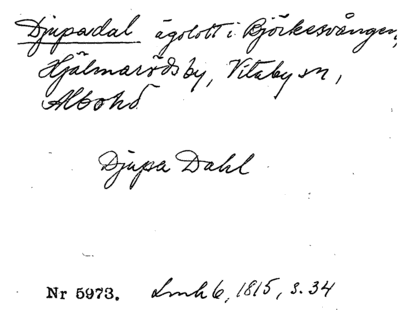 Djupadal ägolott i Björkesvången,
Hjälmaröds by, Vitaby sn,
Albo hd
Djupa Dahl
Nr 5973. Lmh 6, 1815, s. 34